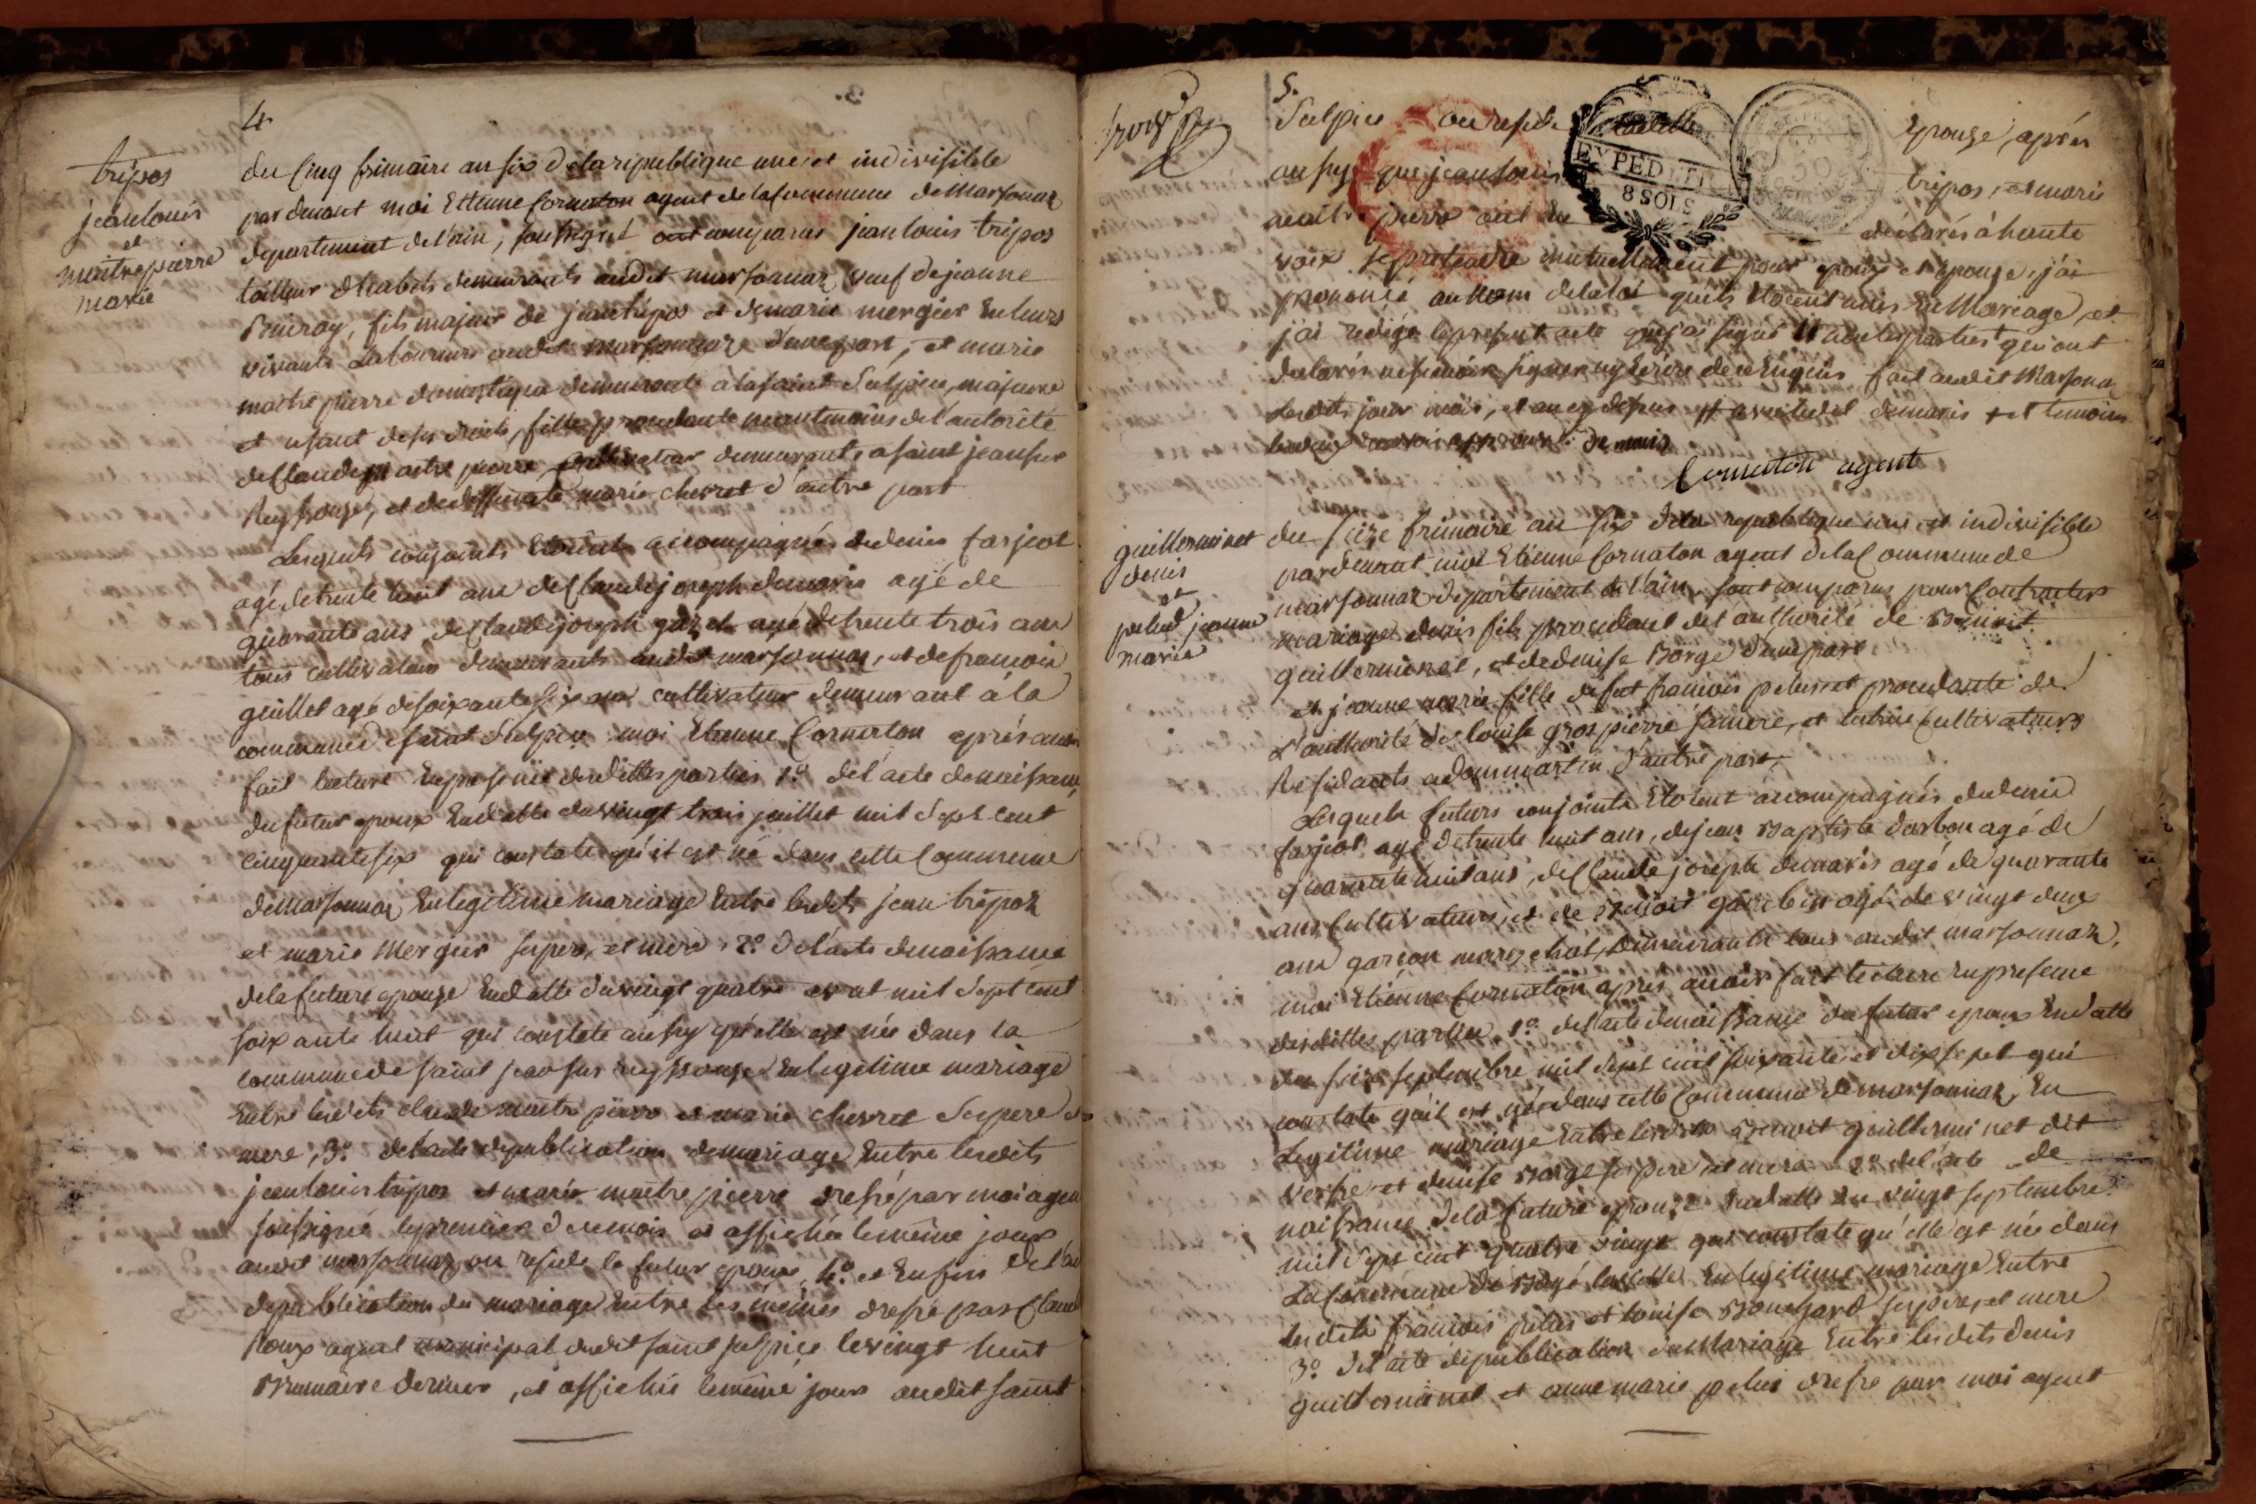 4.
tripos
jean louis
et
maitrepierre
marie
du cinq frimaire an six de la republique une et indivisible
par devant moi Etienne Cornaton agent de la commune de Marsonnaz
departement de l'ain, soussigné ont comparus jean louis tripos
tailleur d'habits demeurants audit marsonnaz veuf de jeanne
fils majeur de jean tripos et de marie mergier en leurs
vivants laboureurs audit marsonnaz d'une part, et marie
maitrepierre domestique demeurante à la saint Sulpice, majeure
et usant de ses droits, fille procedante neantmoins de l'autorité
de Claude maitre pierre cultivateur demeurants a saint jean sur
Reyssouze, et de deffuncte marie cherret d'autre part
Lesquels conjoints Etoient accompagnés de denis farjeot
agé de trente huit ans de Claude joseph demaris agé de
quarante ans de Claude joseph agé de trente trois ans
tous cultivateurs demeurants audit marsonnaz, et de francois
guillet agé de soixante six ans cultivateur demeurant à la
commune de saint Sulpice moi Etienne Cornaton aprés avoir
fait lecture En presence desdittes parties 1º de l'acte de naissance
du futur epoux En datte du vingt trois juillet mil sept cent
cinquante six qui constate qu'il est né dans cette Commune
de marsonnaz En legitime mariage Entre lesdits jean tripoz
et marie Mergier ses pere, et mere 2º de l'acte de naissance
de la future epouze En datte du vingt quatre avut mil sept cent
soixante huit qui constate aussy qu'elle est née dans la
commune de saint jean sur reyssouze En legitime mariage
Entre lesdits claude maitre pierre et marie cherret ses pere et
mere, 3º de l'acte de publication de mariage Entre lesdits
jean louis tripos et marie maitre pierre dressé par moi agent
soussigné le premier de ce mois et affiché le même jour
audit marsonnaz ou reside le futur epoux, 4º et Enfin de l'acte
de publication du mariage Entre les mêmes dressé par Claude
Roux agent municipal dudit saint sulpice le vingt huit
Brumaire dernier, et affiché le même jour audit saint
5.
Sulpice ou reside laditte Epouze, aprés
EXPEDITION
8 SOLS
50
aussy que jean louis tripos, et marie
maitre pierre ont eu déclarés à haute
voix se prendre mutuellement pour epoux et epouze, j'ai
prononcé au Nom de la loi qu'ils Etoient unis En Mariage, et
j'ai redigé le present acte que j'ai signé avec les parties qui ont
declarés ne savoir signer ny Ecrire de ce Enquis fait audit Marsonnaz
lesdits jour mois, et an cy dessus demaris et temoins
demaris
Cornaton agent
guillerminet
denis
et
pelud jeanne
marie
du seize frimaire an six de la republique une et indivisible
pardevant moi Etienne Cornaton agent de la Commune de
marsonnaz departement de l'ain, sont comparus pour Contracter
mariage denis fils procedant de l'authorité de Benoit
guillerminet, et de denise Borge d'une part
et jeanne marie fille de feut francois pelus et procedante de
L'authorité de louise gros pierre sa mere, et tutrice Cultivateurs
Residants a dommartin d'autre part,
Lesquels futurs conjoints Etoient accompagnés de denis
farjeot agé de trente huit ans, de jean Baptiste darbon agé de
quarante huit ans, de Claude joseph demaris agé de quarante
ans Cultivateurs, et de Benoit agé de vingt deux
ans garcon marechal, demeurants tous audit marsonnaz,
moi Etienne Cornaton aprés avoir fait lecture En presence
desdittes parties, 1º de l'acte de naissance du futur epoux En datte
du seize septembre mil sept cent soixante et dix sept qui
constate qu'il est né dans cette Commune de marsonnaz, En
Legitime mariage Entre lesdits Benoit guillerminet dit
et denise Borge ses pere et mere 2º de l'acte de
naissance de la future epouze En datte du vingt septembre
mil sept cent quatre vingt qui constate qu'elle est née dans
La Commune de Bagé la En legitime mariage Entre
lesdits francois pelus et louise ses pere, et mere
3º de l'acte de publication du Mariage Entre lesdits denis
guillerminet et anne marie pelus dressé par moi agent